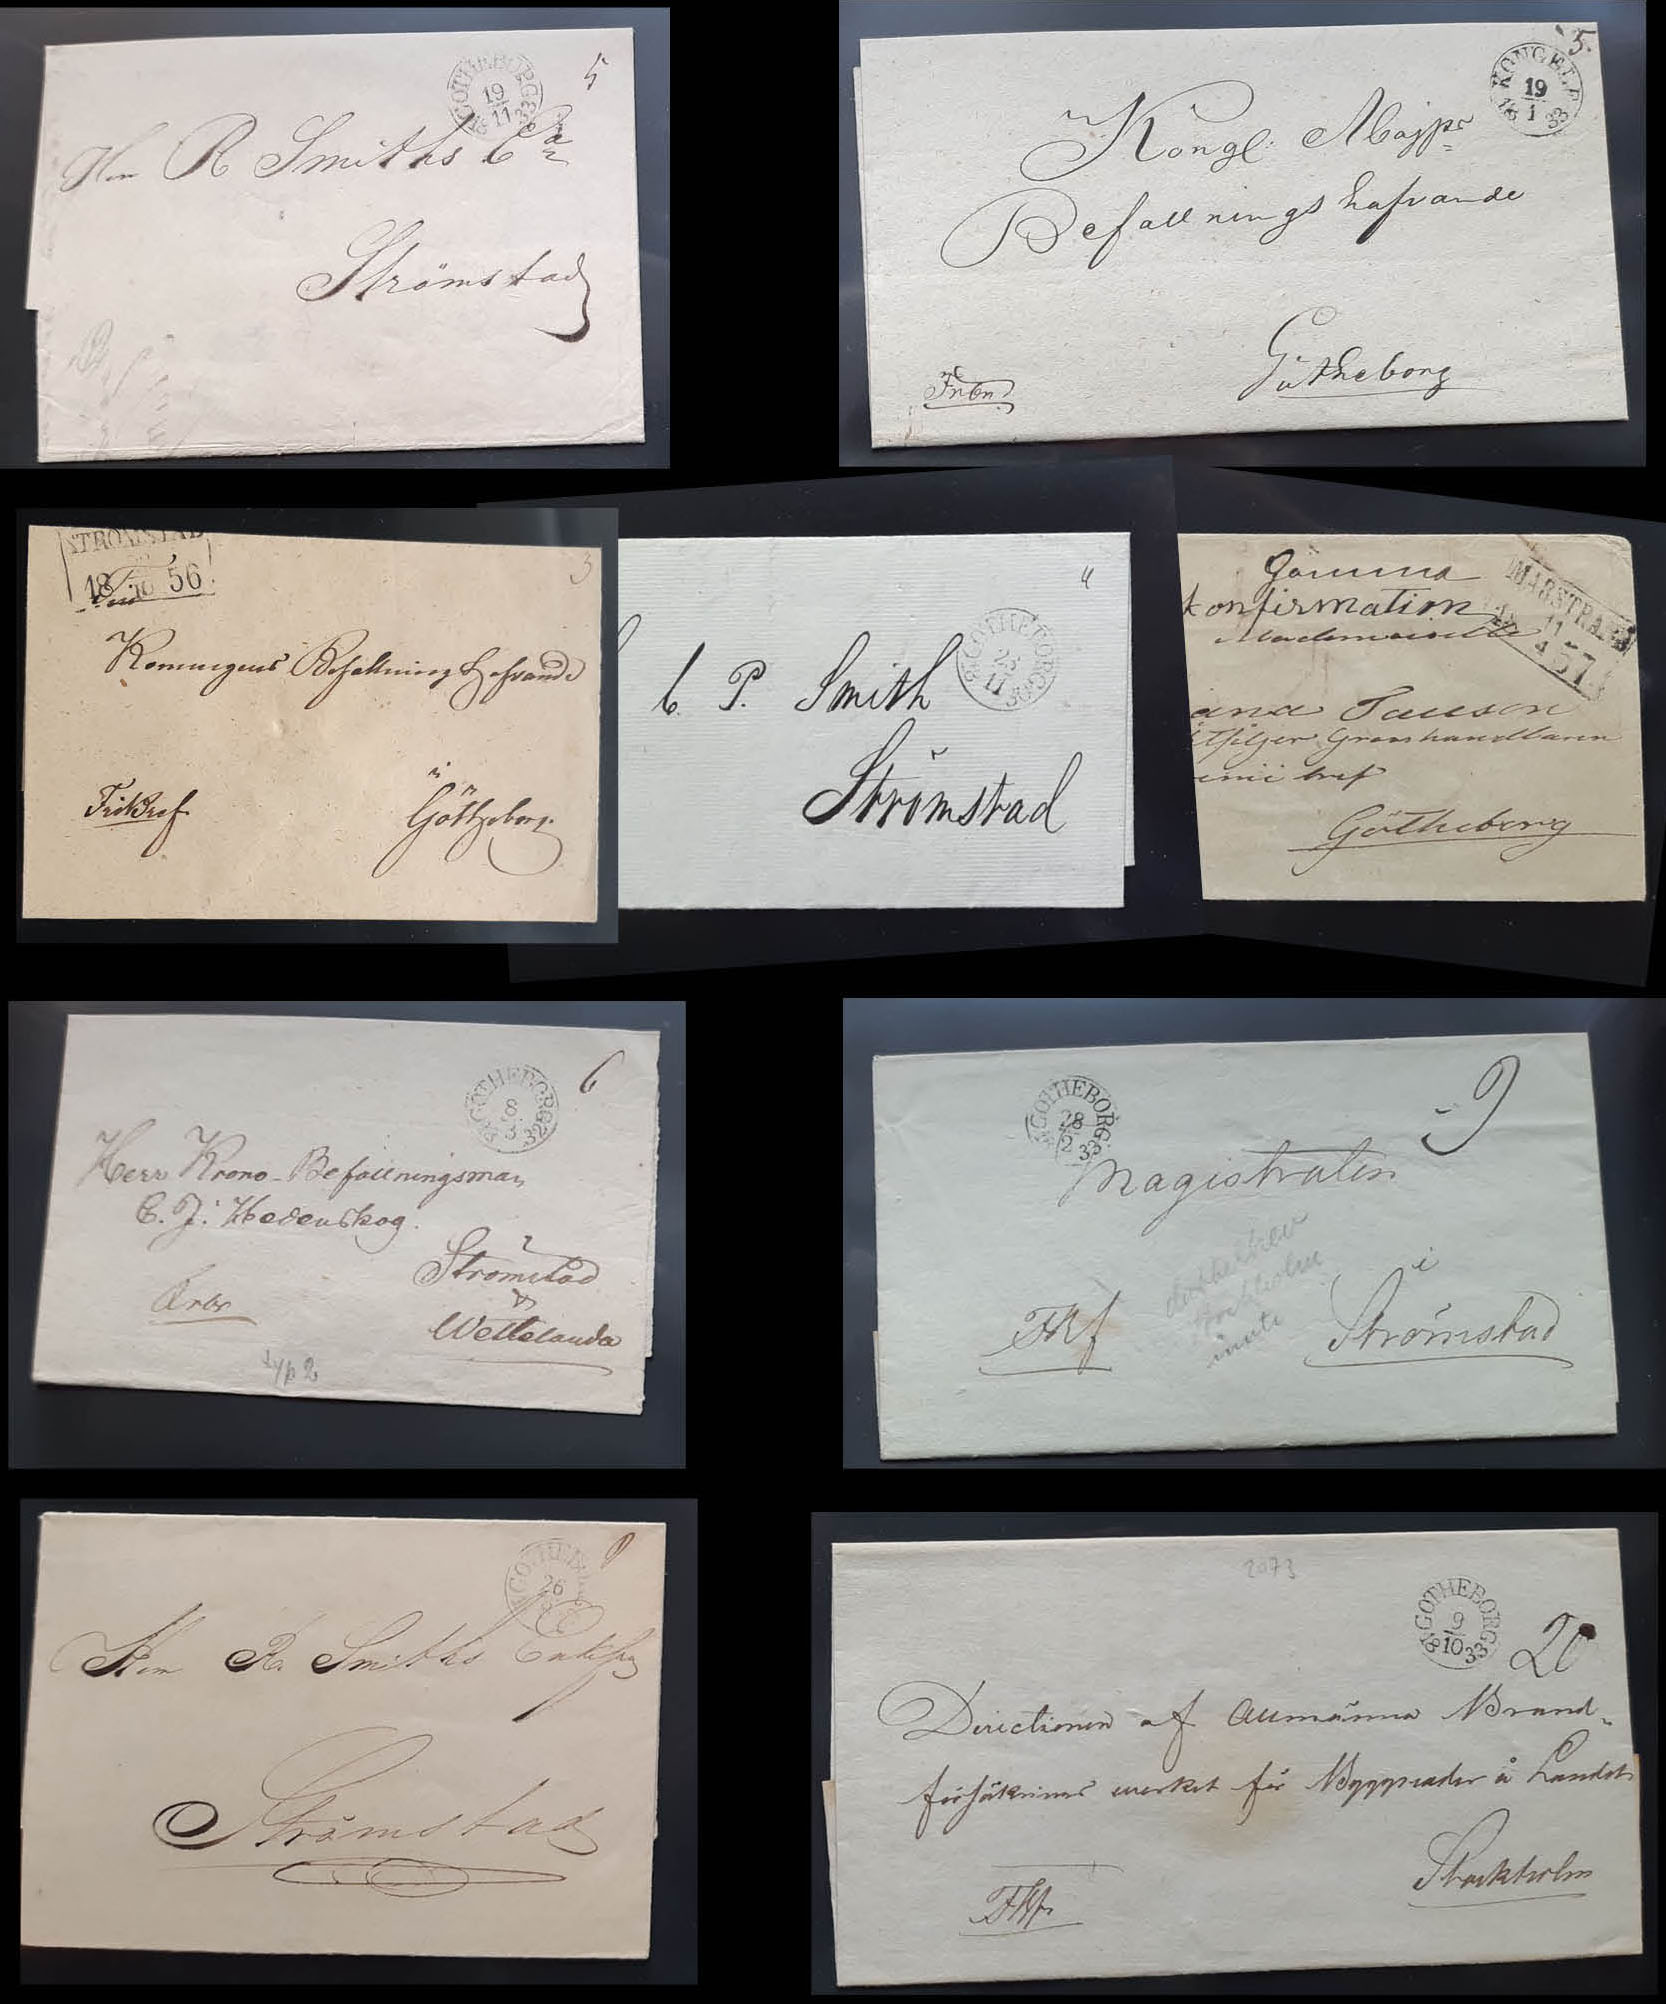 GOTHEBORG
19
11
18 33
5
Herr R Smiths C
Strömstad
KONGELF
19
1
18 33
5
Kongl. Majsts
Befallningshafvande
Götheborg
STRÖMSTAD
18 56
3
Konungens Befallningshafvande
i
Frikbref
Götheborg
GOTHEBORG
25
11
4
C. P. Smith
Strömstad
MARSTRAND
11
4
57
Gamma
konfirmation
Mademoiselle
Tauson
Grosshandlaren
Götheborg
GOTHEBORG
8
3
1832
6
Herr Krono-Befallningsman
C. J. Hedenskog.
Strömstad
&
Wettelanda
typ 2
GOTHEBORG
28
2
18 33
9
Magistraten
i
Fkbf
Strömstad
dubbelbrev
GOTHEBORG
26
Herr R. Smiths Enkefru
Strömstad
2073
GOTHEBORG
9
10
18 33
20
Directionen af Allmänna Brand-
försäknings werket för Byggnader å Landet
Stockholm
Fkbf